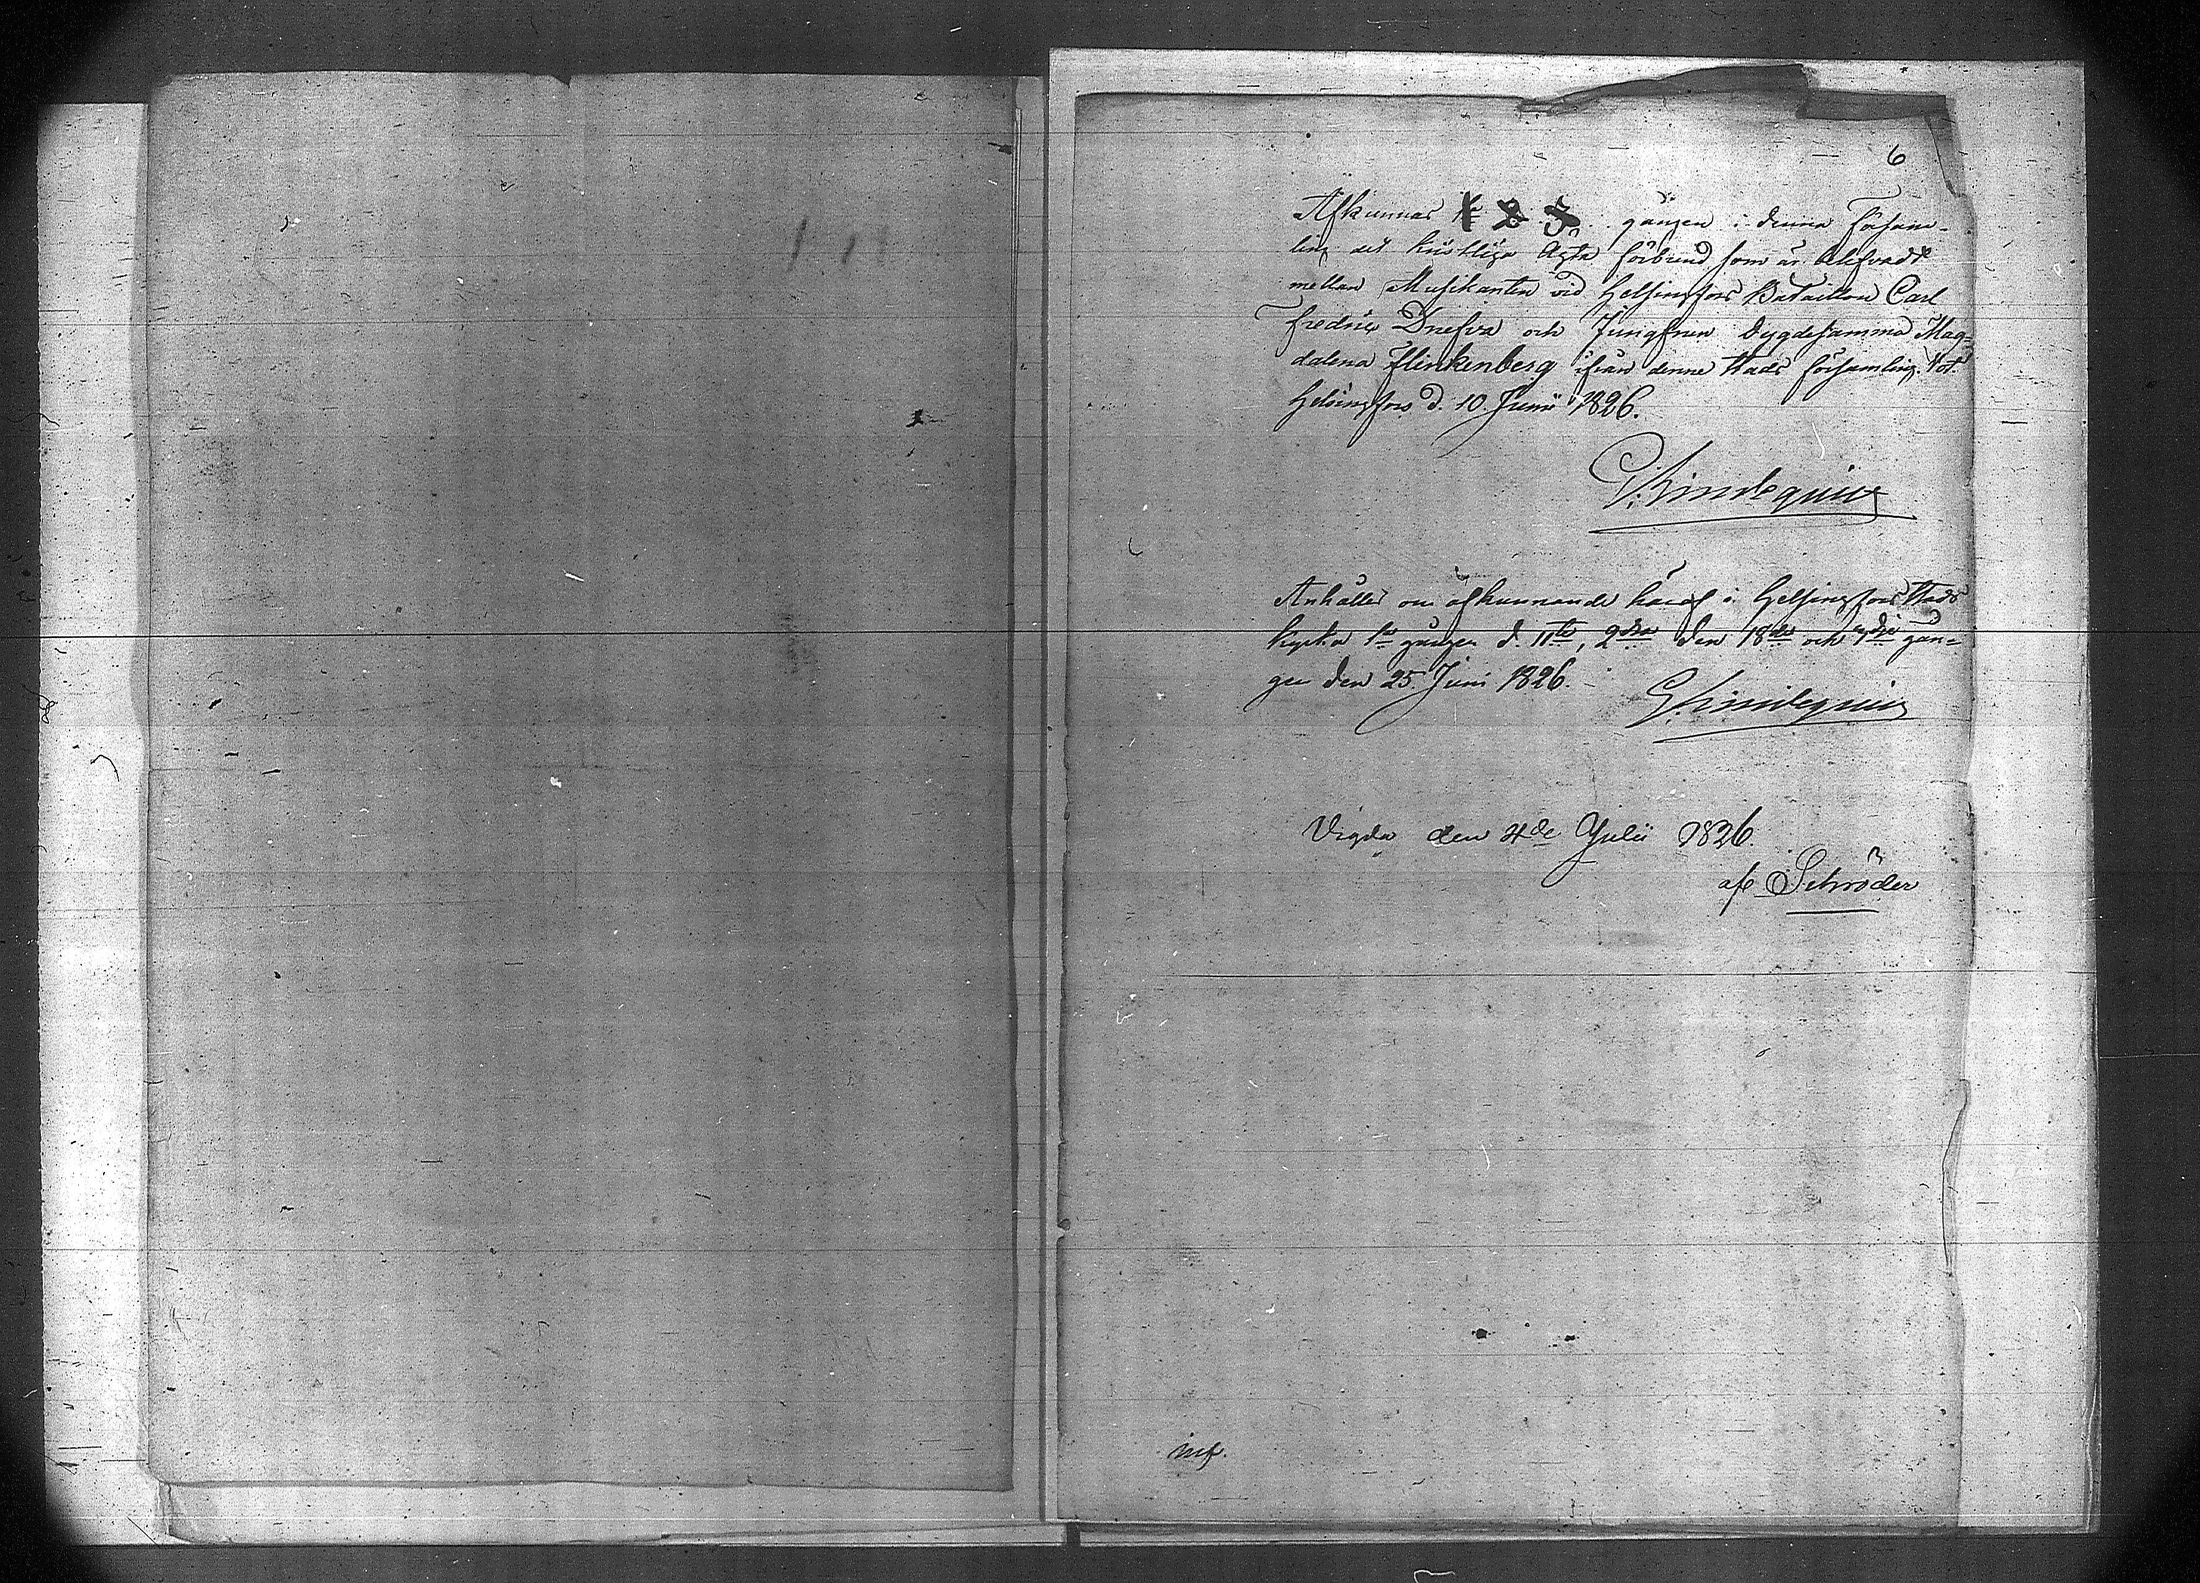 6
Afkunnas 1 2 3 gången i denna Försam-
ling det kristliga Ägta förbund som är
mellan Musikanten vid Helsingfors Bataillon Carl
Fredric Drefva och Jungfrun Dygdesamma Mag-
dalena Flinkenberg ifrån denne Stads församling.
Helsingfors d. 10 Junii 1826.
Anhålles om afkunnande häraf i Helsingfors Stads
kyrka 1a gången d. 11te, 2dra den 18de och 3dje gån=
gen den 25 Juni 1826.
Vigda den 4de Julii 1826.
af Schröder